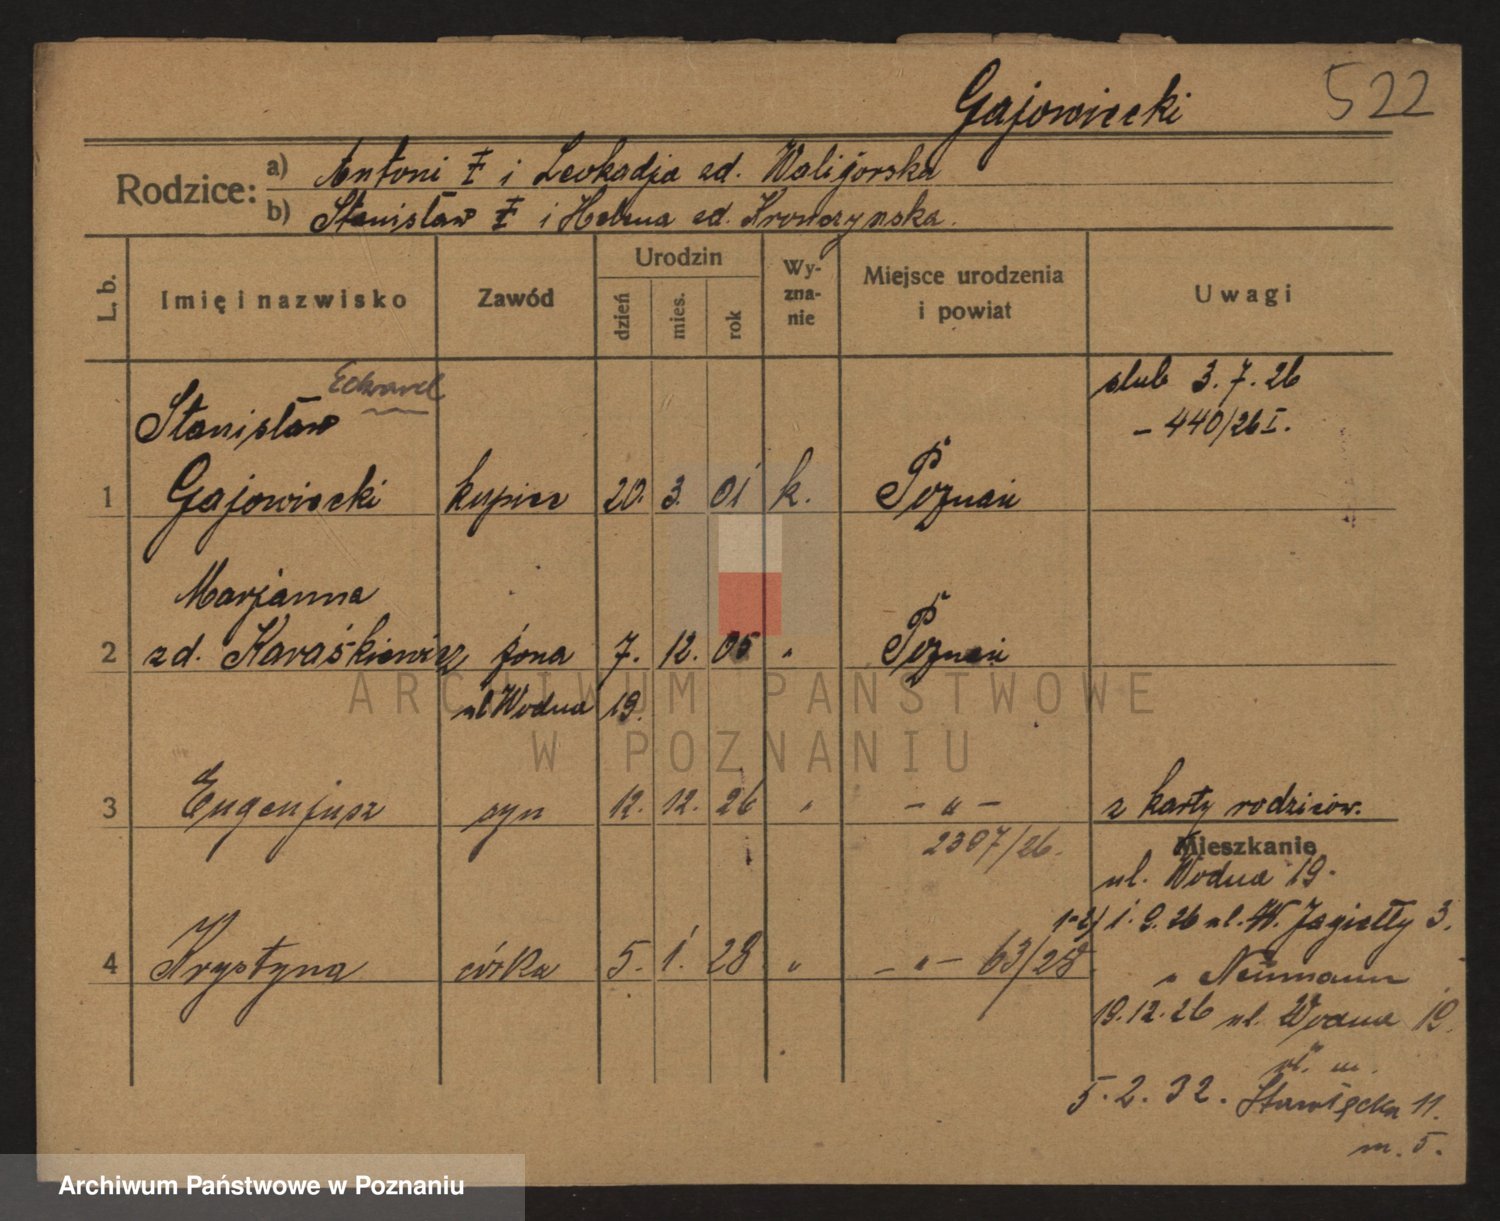 Gajowiecki 522
Rodzice: a) Antoni ‡ i Leokadja zd. Waligorska
b) Stanisław ‡ i Helena zd. Kronczynska.
L. b. Imię i nazwisko Zawód Urodzin dzień mies. rok Wy-zna-nie Miejsce urodzenia i powiat Uwagi
Edward
Stanisław
ślub 3.7.26
- 440/26 I.
1 Gajowiecki kupiec 20. 3. 01 k. Poznań
Marjanna
2 zd. Karaśkiewicz żona 7. 12. 05 " Poznań
ul Wodna 19.
3 Eugenjusz syn 12. 12. 26 " - " - z karty rodziców.
2397/26.
Mieszkanie
ul. Wodna 19.
1-2/ 1.9.26 ul. W. Jagiełły 3.
4 Krystyna córka 5. 1. 28 " - " - 63/28
" Neumann
19.12.26 ul. Wodna 19.
wł. m.
5.2.32. 11.
m. 5.
ARCHIWUM PAŃSTWOWE
W POZNANIU
Archiwum Państwowe w Poznaniu